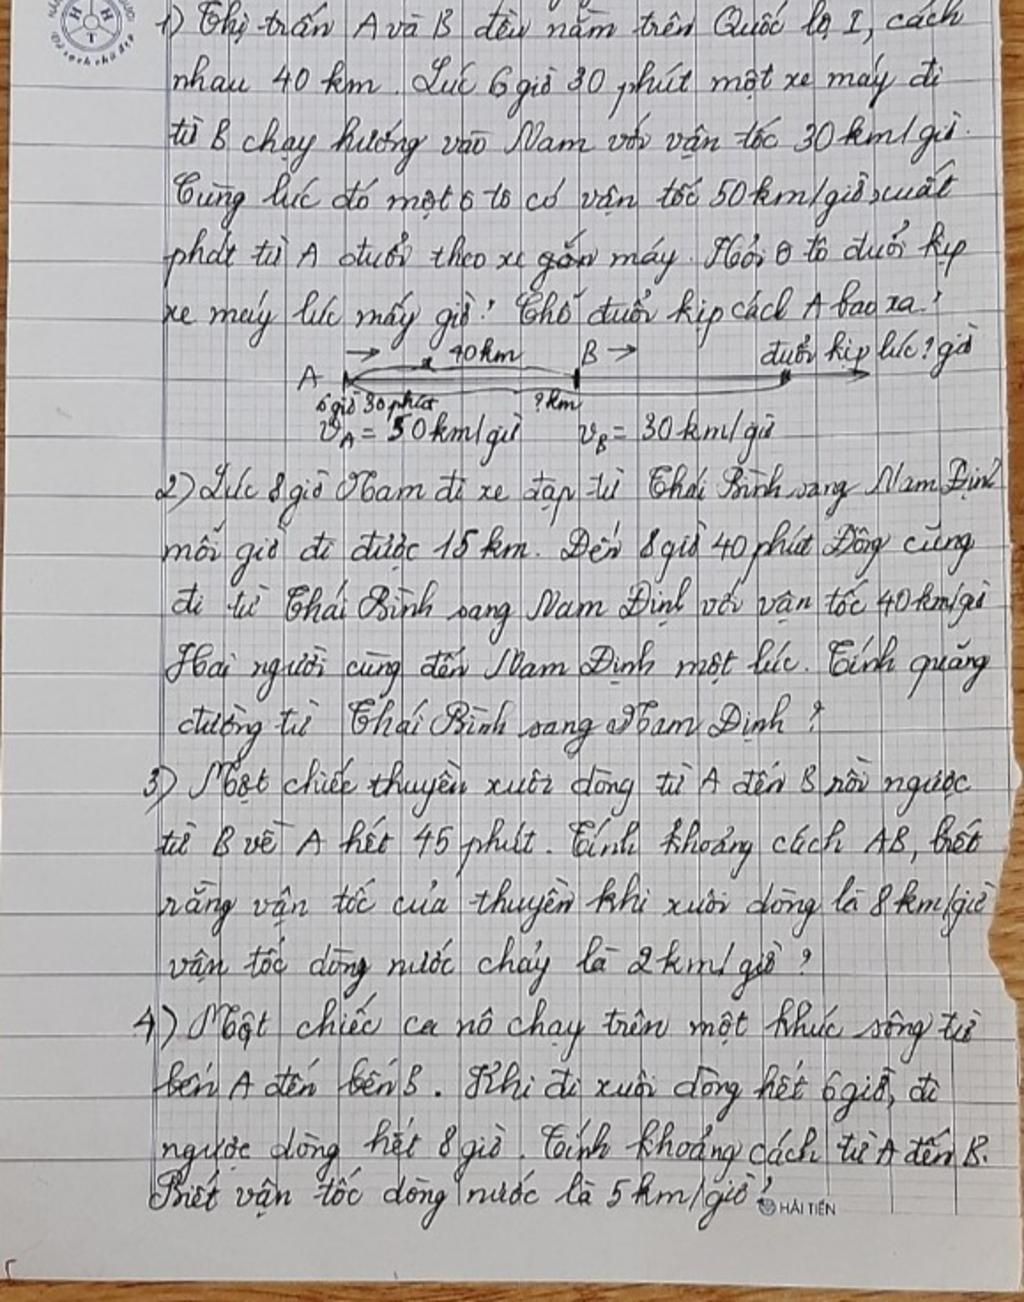 H H
T
1) Thị trấn A và B đều nằm trên Quốc lộ I, cách
nhau 40 km. Lúc 6 giờ 30 phút một xe máy đi
từ B chạy hướng vào Nam với vận tốc 30 km/giờ.
Cùng lúc đó một ô tô có vận tốc 50 km/giờ xuất
phát từ A đuổi theo xe gắn máy. Hỏi ô tô đuổi kịp
xe máy lúc mấy giờ? Chỗ đuổi kịp cách A bao xa?
40 km B đuổi kịp lúc ? giờ
A
6 giờ 30 phút ? km
vA = 50 km/giờ vB = 30 km/giờ
2) Lúc 8 giờ Nam đi xe đạp từ Thái Bình sang Nam Định
mỗi giờ đi được 15 km. Đến 8 giờ 40 phút Đông cũng
đi từ Thái Bình sang Nam Định với vận tốc 40 km/giờ
Hai người cùng đến Nam Định một lúc. Tính quãng
đường từ Thái Bình sang Nam Định ?
3) Một chiếc thuyền xuôi dòng từ A đến B rồi ngược
từ B về A hết 45 phút. Tính khoảng cách AB, biết
rằng vận tốc của thuyền khi xuôi dòng là 8 km/giờ
vận tốc dòng nước chảy là 2 km/giờ ?
4) Một chiếc ca nô chạy trên một khúc sông từ
bến A đến bến B. Khi đi xuôi dòng hết 6 giờ, đi
ngược dòng hết 8 giờ. Tính khoảng cách từ A đến B.
Biết vận tốc dòng nước là 5 km/giờ ?
HẢI TIẾN